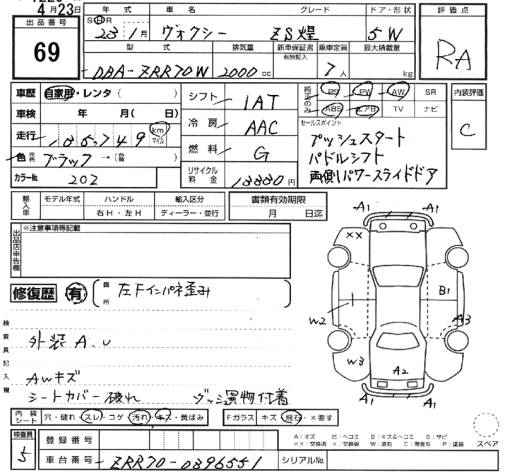 4月23日
出品番号 69
年式 車名 グレード ドア・形状 評価点
SⒽR 23年1月 ヴォクシー ZS煌 5W RA
型式 排気量 新車保証書 有無記入 乗車定員 最大積載量
DBA-ZRR70W 2000cc 7人 kg
車歴 自家用・レンタ( )
シフト 1AT
純正のみ PS PW AW SR
ABS エアB TV ナビ
内装評価 C
車検 年 月( 日)
冷房 AAC
セールスポイント
走行 105749 km マイル
プッシュスタート
パドルシフト
両側パワースライドドア
色 元色 ブラック →(替 )
燃料 G
カラーNo. 202
リサイクル料金 13330円
輸入車 モデル年式 ハンドル 輸入区分 書類有効期限
右H・左H ディーラー・並行 月 日迄
出品店申告欄 ※注意事項等記載
修復歴 有 箇所 左Fインパネ歪み
検査員記入欄
外装A、U
AWキズ
シートカバー破れ ダッシュ異物付着
内装シート 穴・破れ・スレ・コゲ・汚れ・キズ・黄ばみ Fガラス キズ・飛石・×要す
検査員 5
登録番号
車台番号 ZRR70-0396551
シリアルNo.
A1 A1
××
B1
W2
A3
W3
A2
A1 A1
A:キズ
スペア